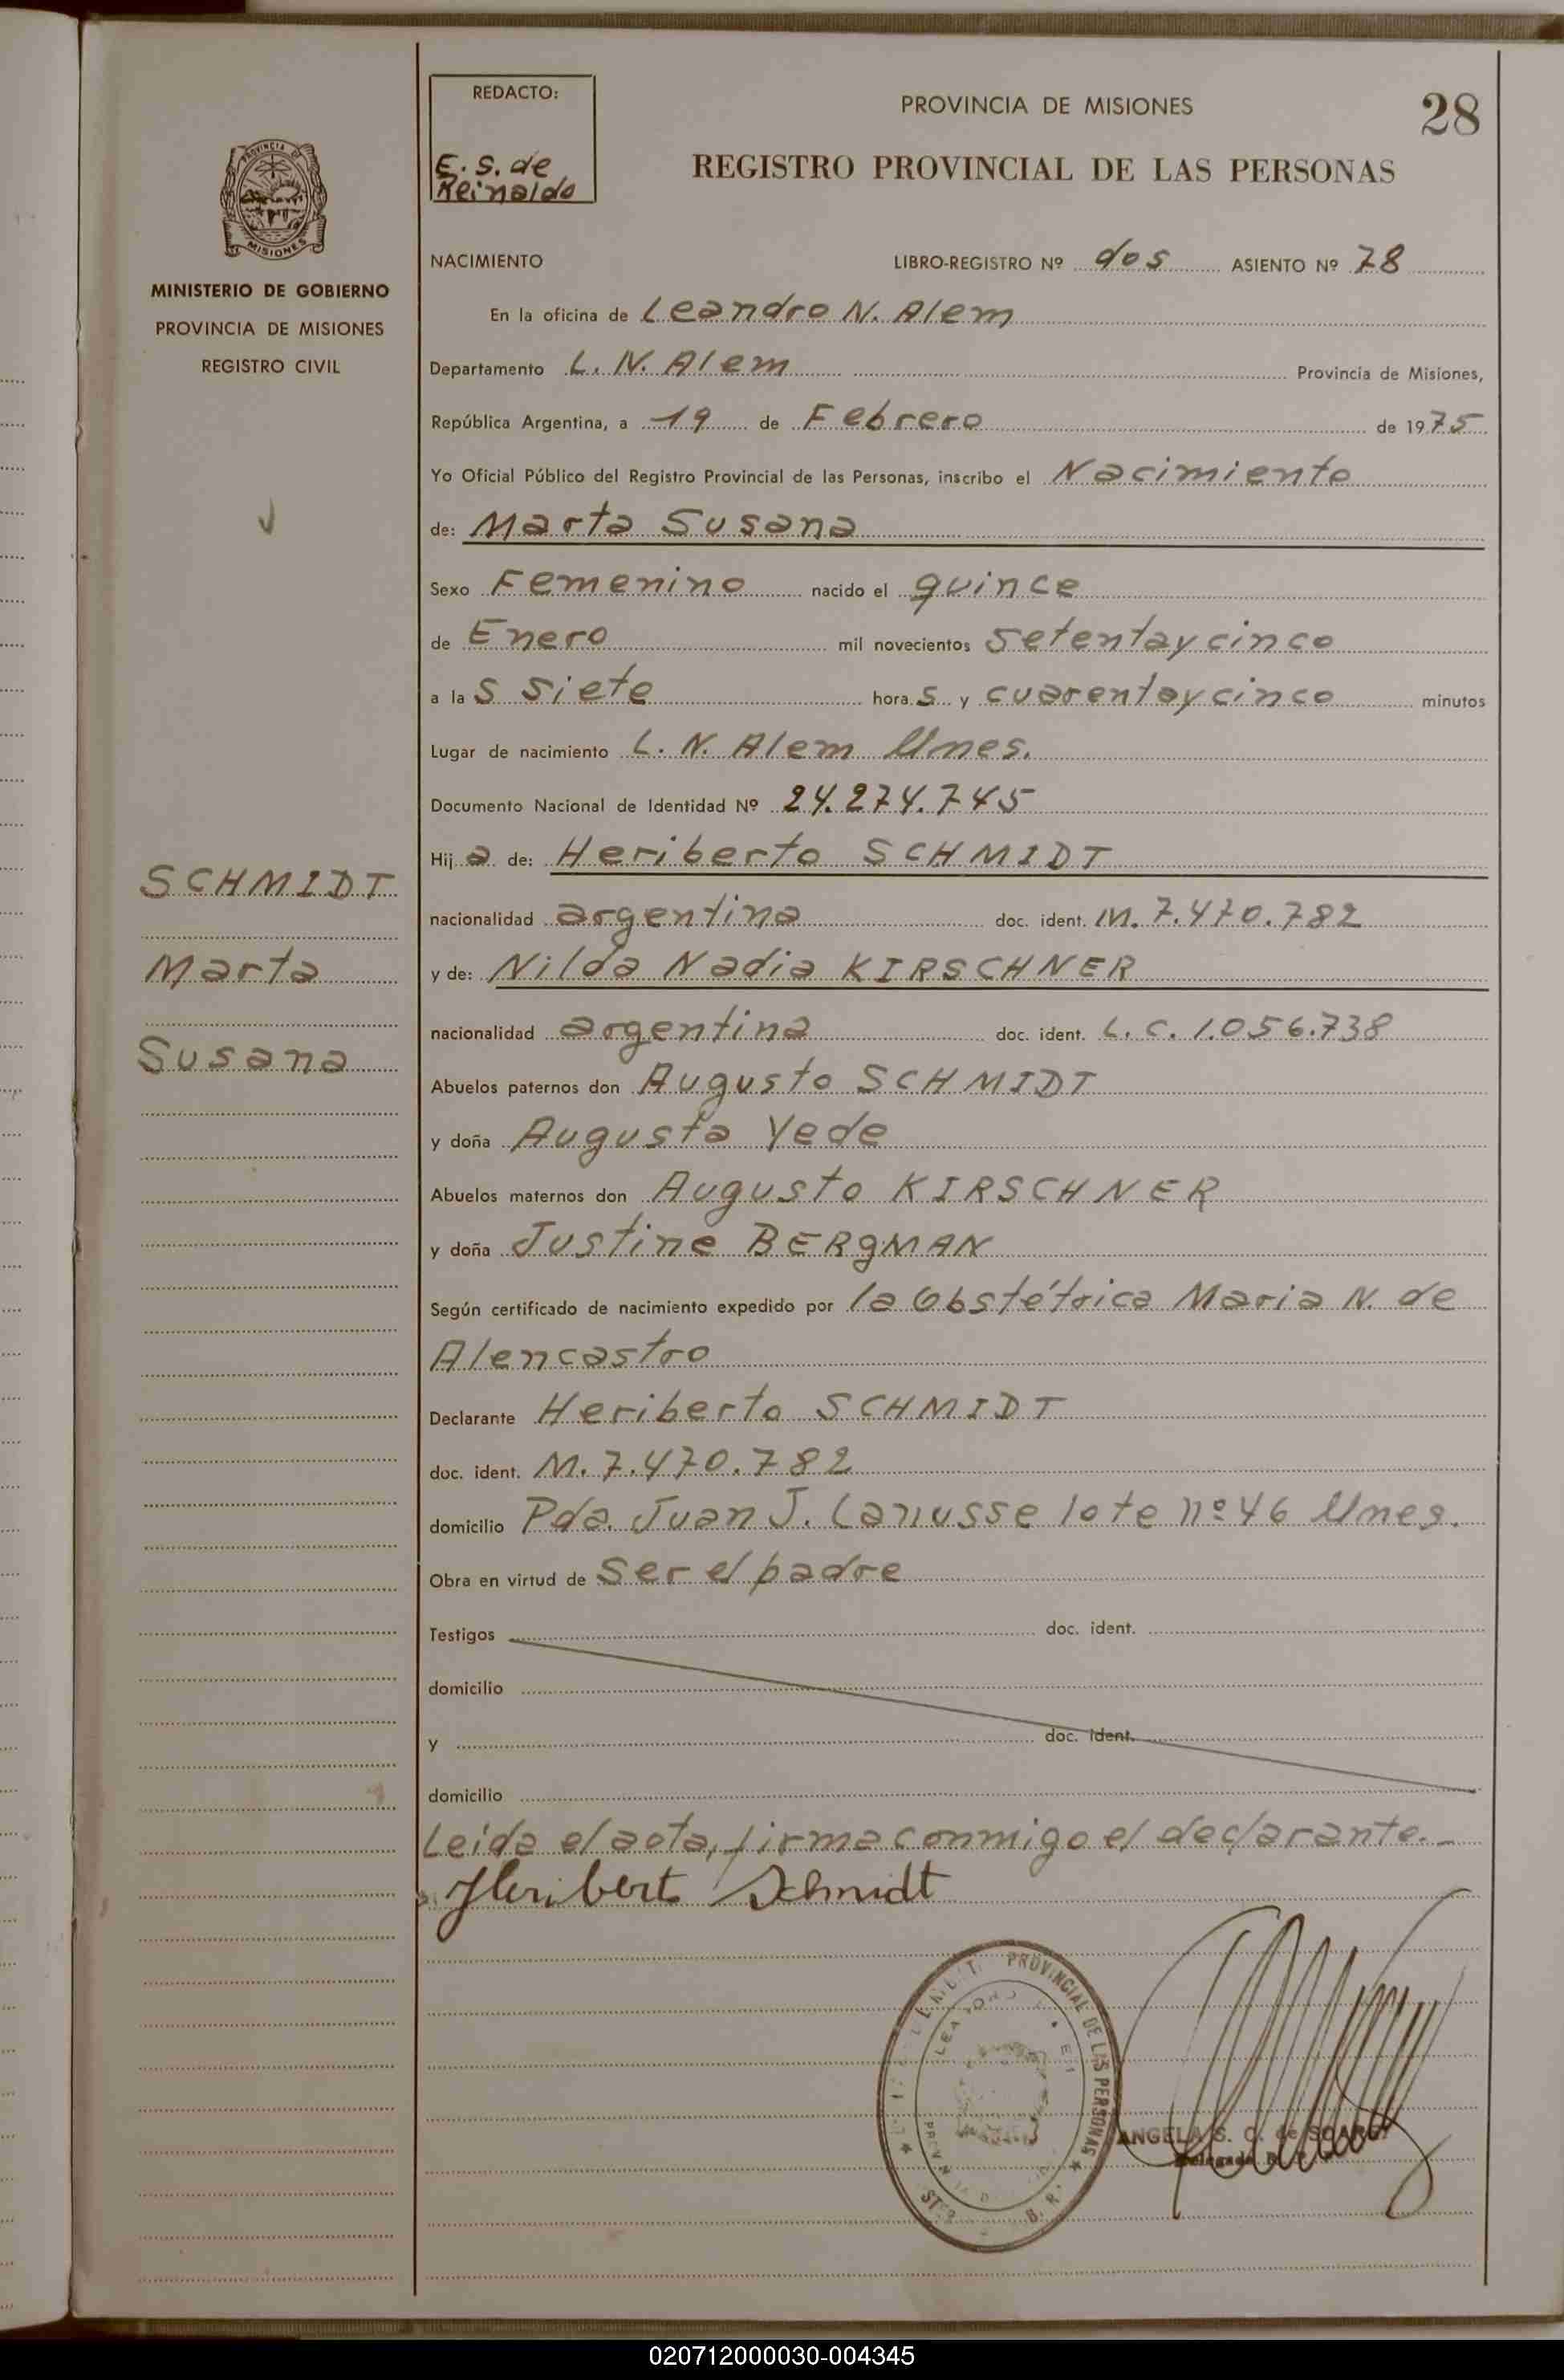 REDACTO:
E. S. de
Reinaldo
PROVINCIA DE MISIONES
28
REGISTRO PROVINCIAL DE LAS PERSONAS
PROVINCIA DE
MISIONES
MINISTERIO DE GOBIERNO
PROVINCIA DE MISIONES
REGISTRO CIVIL
NACIMIENTO LIBRO-REGISTRO Nº dos ASIENTO Nº 78
En la oficina de Leandro N. Alem
Departamento L. N. Alem Provincia de Misiones,
República Argentina, a 19 de Febrero de 1975
Yo Oficial Público del Registro Provincial de las Personas, inscribo el Nacimiento
de: Marta Susana
Sexo Femenino nacido el quince
de Enero mil novecientos setentaycinco
a las siete horas y cuarentaycinco minutos
Lugar de nacimiento L. N. Alem Mnes.
Documento Nacional de Identidad Nº 24.274.745
Hija de: Heriberto SCHMIDT
SCHMIDT
nacionalidad argentina doc. ident. M. 7.470.782
Marta
y de: Nilda Nadia KIRSCHNER
nacionalidad argentina doc. ident. L. C. 1.056.738
Susana
Abuelos paternos don Augusto SCHMIDT
y doña Augusta Yede
Abuelos maternos don Augusto KIRSCHNER
y doña Justine BERgMAN
Según certificado de nacimiento expedido por la Obstétrica Maria N. de
Alencastro
Declarante Heriberto SCHMIDT
doc. ident. M. 7.470.782
domicilio Pda. Juan J. Lanusse lote nº 46 Mnes.
Obra en virtud de ser el padre
Testigos doc. ident.
domicilio
y doc. ident.
domicilio
Leída el acta, firma conmigo el declarante.-
Heribert Schmidt
PROVINCIAL DE LAS PERSONAS
ANGELA S. C. de
Delegada
020712000030-004345